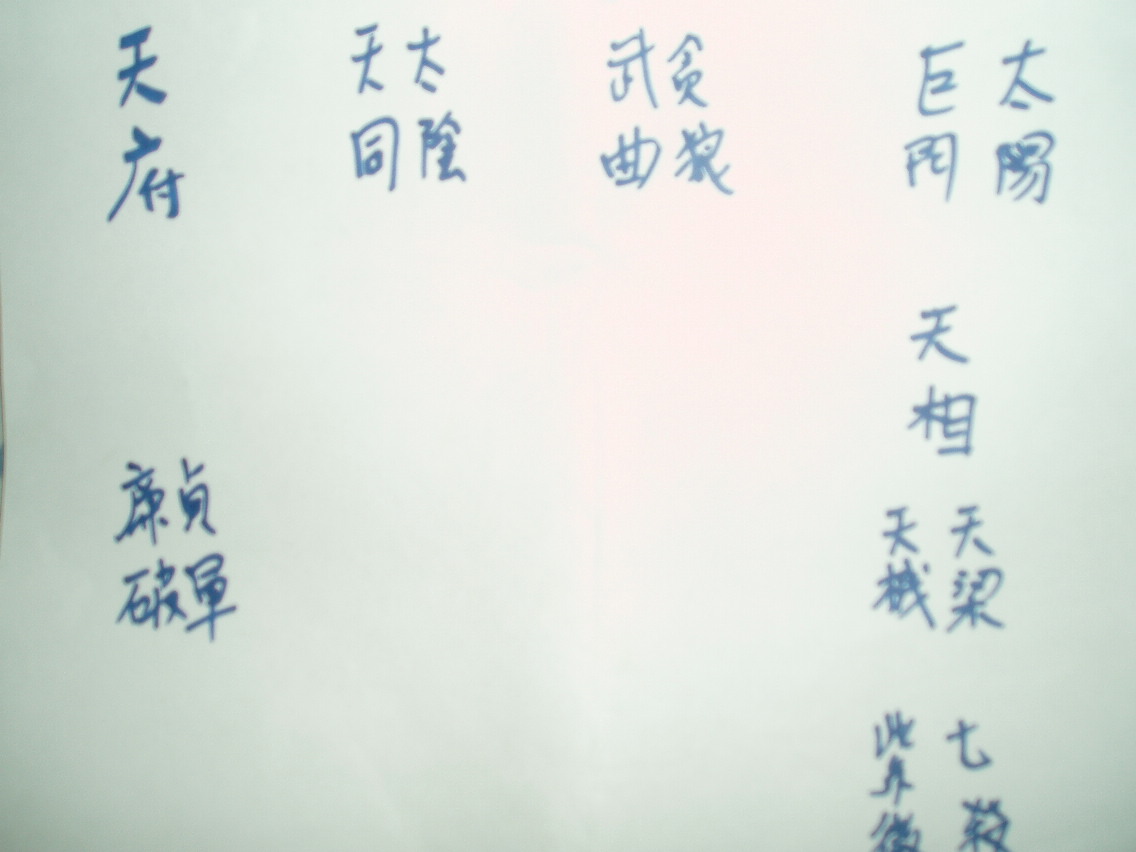 天府
天同
太陰
武曲
貪狼
巨門
太陽
天相
廉貞
破軍
天機
天梁
紫微
七殺